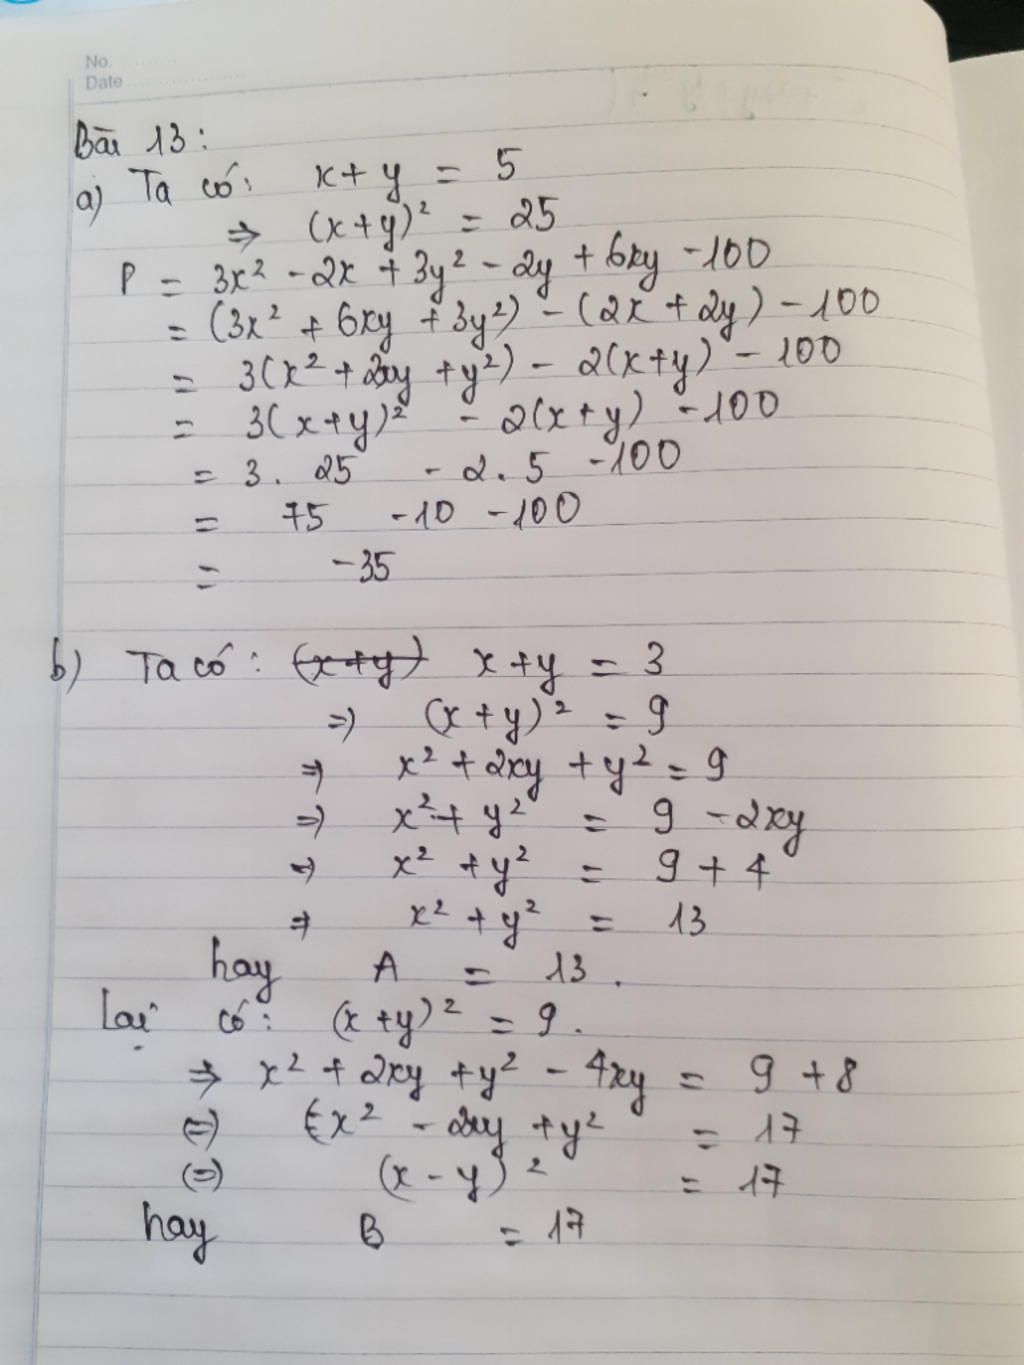 No.
Date
Bài 13:
a) Ta có: x + y = 5
⇒ (x+y)² = 25
P = 3x² - 2x + 3y² - 2y + 6xy - 100
= (3x² + 6xy + 3y²) - (2x + 2y) - 100
= 3(x² + 2xy + y²) - 2(x+y) - 100
= 3(x+y)² - 2(x+y) - 100
= 3. 25 - 2. 5 - 100
= 75 - 10 - 100
= -35
b) Ta có: (x+y) x + y = 3
⇒ (x+y)² = 9
⇒ x² + 2xy + y² = 9
⇒ x² + y² = 9 - 2xy
⇒ x² + y² = 9 + 4
⇒ x² + y² = 13
hay A = 13.
Lại có: (x+y)² = 9.
⇒ x² + 2xy + y² - 4xy = 9 + 8
(=) x² - 2xy + y² = 17
(=) (x - y)² = 17
hay B = 17